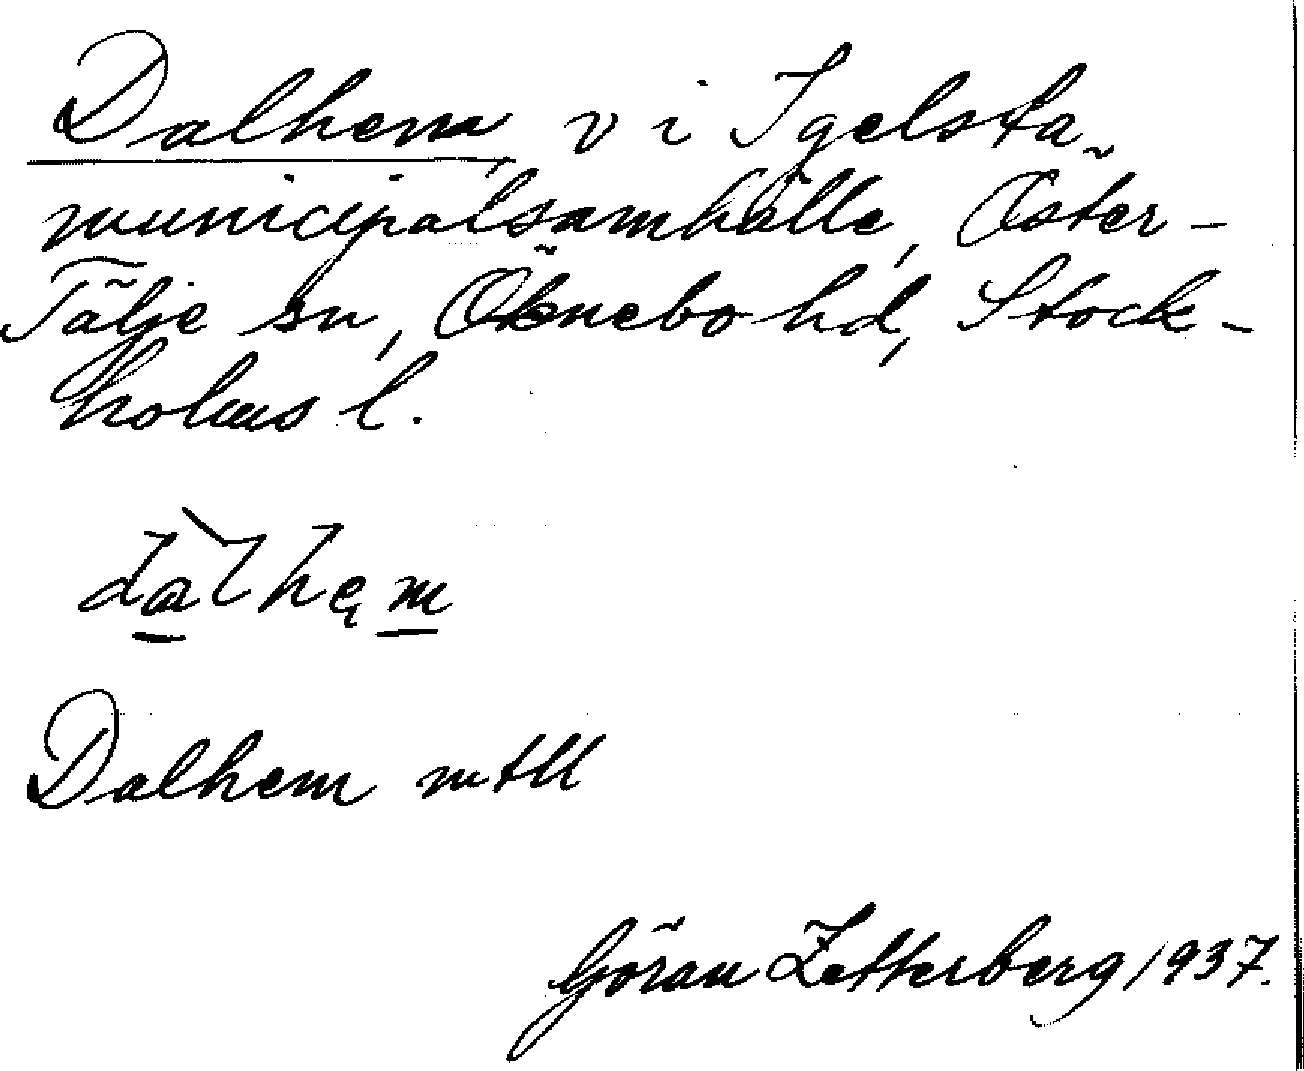 Dalhem, v i Igelsta
municipalsamhälle, Öster-
Tälje sn, Öknebo hd, Stock-
holms l.
dàlhęm
Dalhem mtll
Göran Zetterberg 1937.